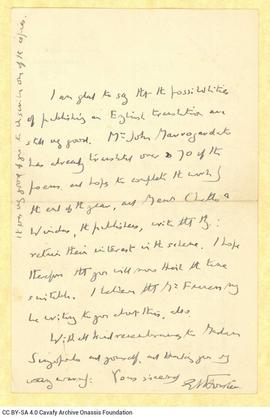 I am glad to say that the possibilities
of publishing an English translation are
still very good. Mr John Mavrogordato
has already translated over 70 of the
poems, and hopes to complete the work by
the end of the year, and Messrs Chatto &
Windus, the publishers, write that they
retain their interest in the scheme. I hope
therefore that you will now think the time
suitable. I believe that Mr Furness may
be writing to you about this, also.
With all kind remembrances to Madame
Singopoulo and yourself, and thanking you very
very warmly: Yours sincerely
EMForster
It was very good of you to
in one of the copies.
CC BY-SA 4.0 Cavafy Archive Onassis Foundation